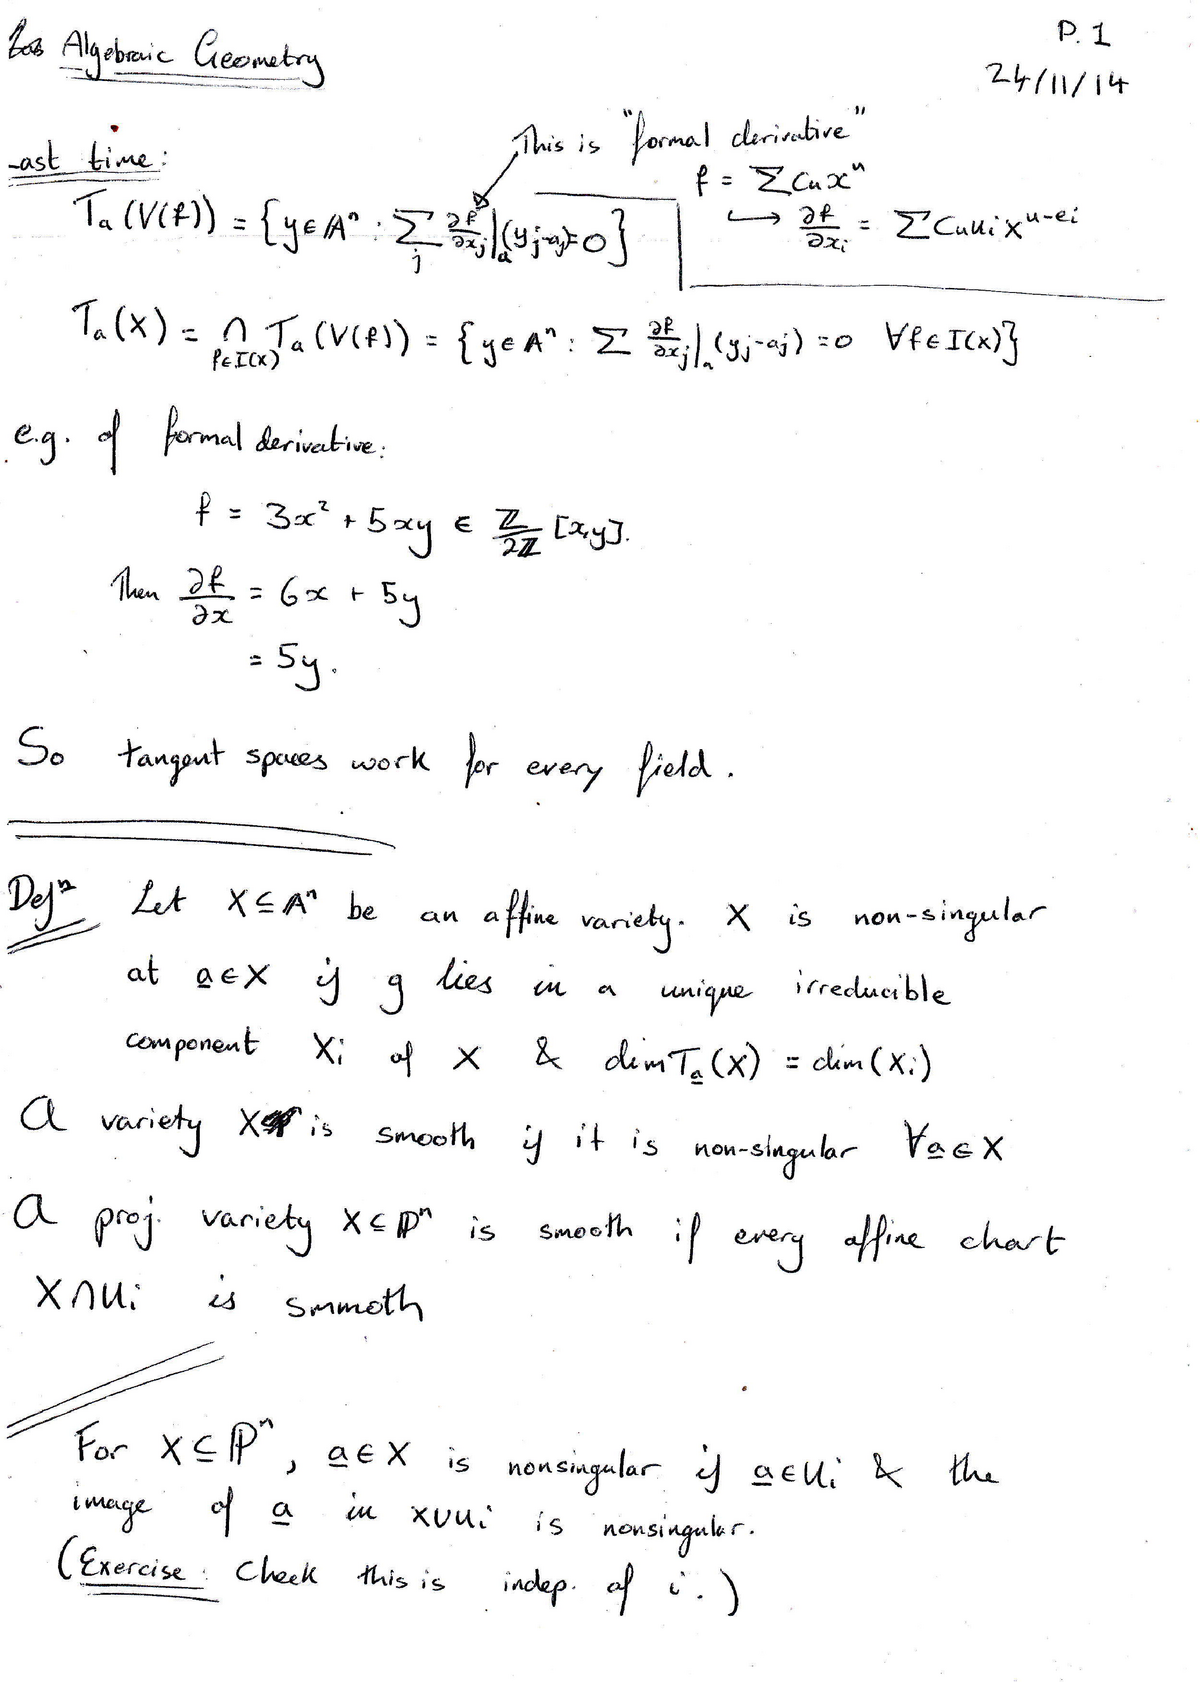 Algebraic Geometry
P. 1
24/11/14
-ast time:
This is "formal derivative"
f = ΣCux^u
↪ ∂f/∂xi = ΣCuuix^{u-ei}
Ta(V(f)) = {y∈𝔸ⁿ : Σ_j ∂f/∂xj|a(yj-aj)=0}
Ta(X) = ∩_{f∈I(X)} Ta(V(f)) = {y∈𝔸ⁿ : Σ ∂f/∂xj|a(yj-aj) =0 ∀f∈I(X)}
e.g. of formal derivative:
f = 3x² + 5xy ∈ ℤ/2ℤ [x,y].
Then ∂f/∂x = 6x + 5y
= 5y.
So tangent spaces work for every field.
Defⁿ Let X⊆𝔸ⁿ be an affine variety. X is non-singular
at a∈X if g lies in a unique irreducible
component Xi of X & dimTa(X) = dim(Xi)
A variety X is smooth if it is non-singular ∀a∈X
A proj. variety X⊆ℙⁿ is smooth if every affine chart
X∩Ui is smmoth
For X⊆ℙⁿ, a∈X is nonsingular if a∈Ui & the
image of a in X∪Ui is nonsingular.
(Exercise: Check this is indep. of i.)